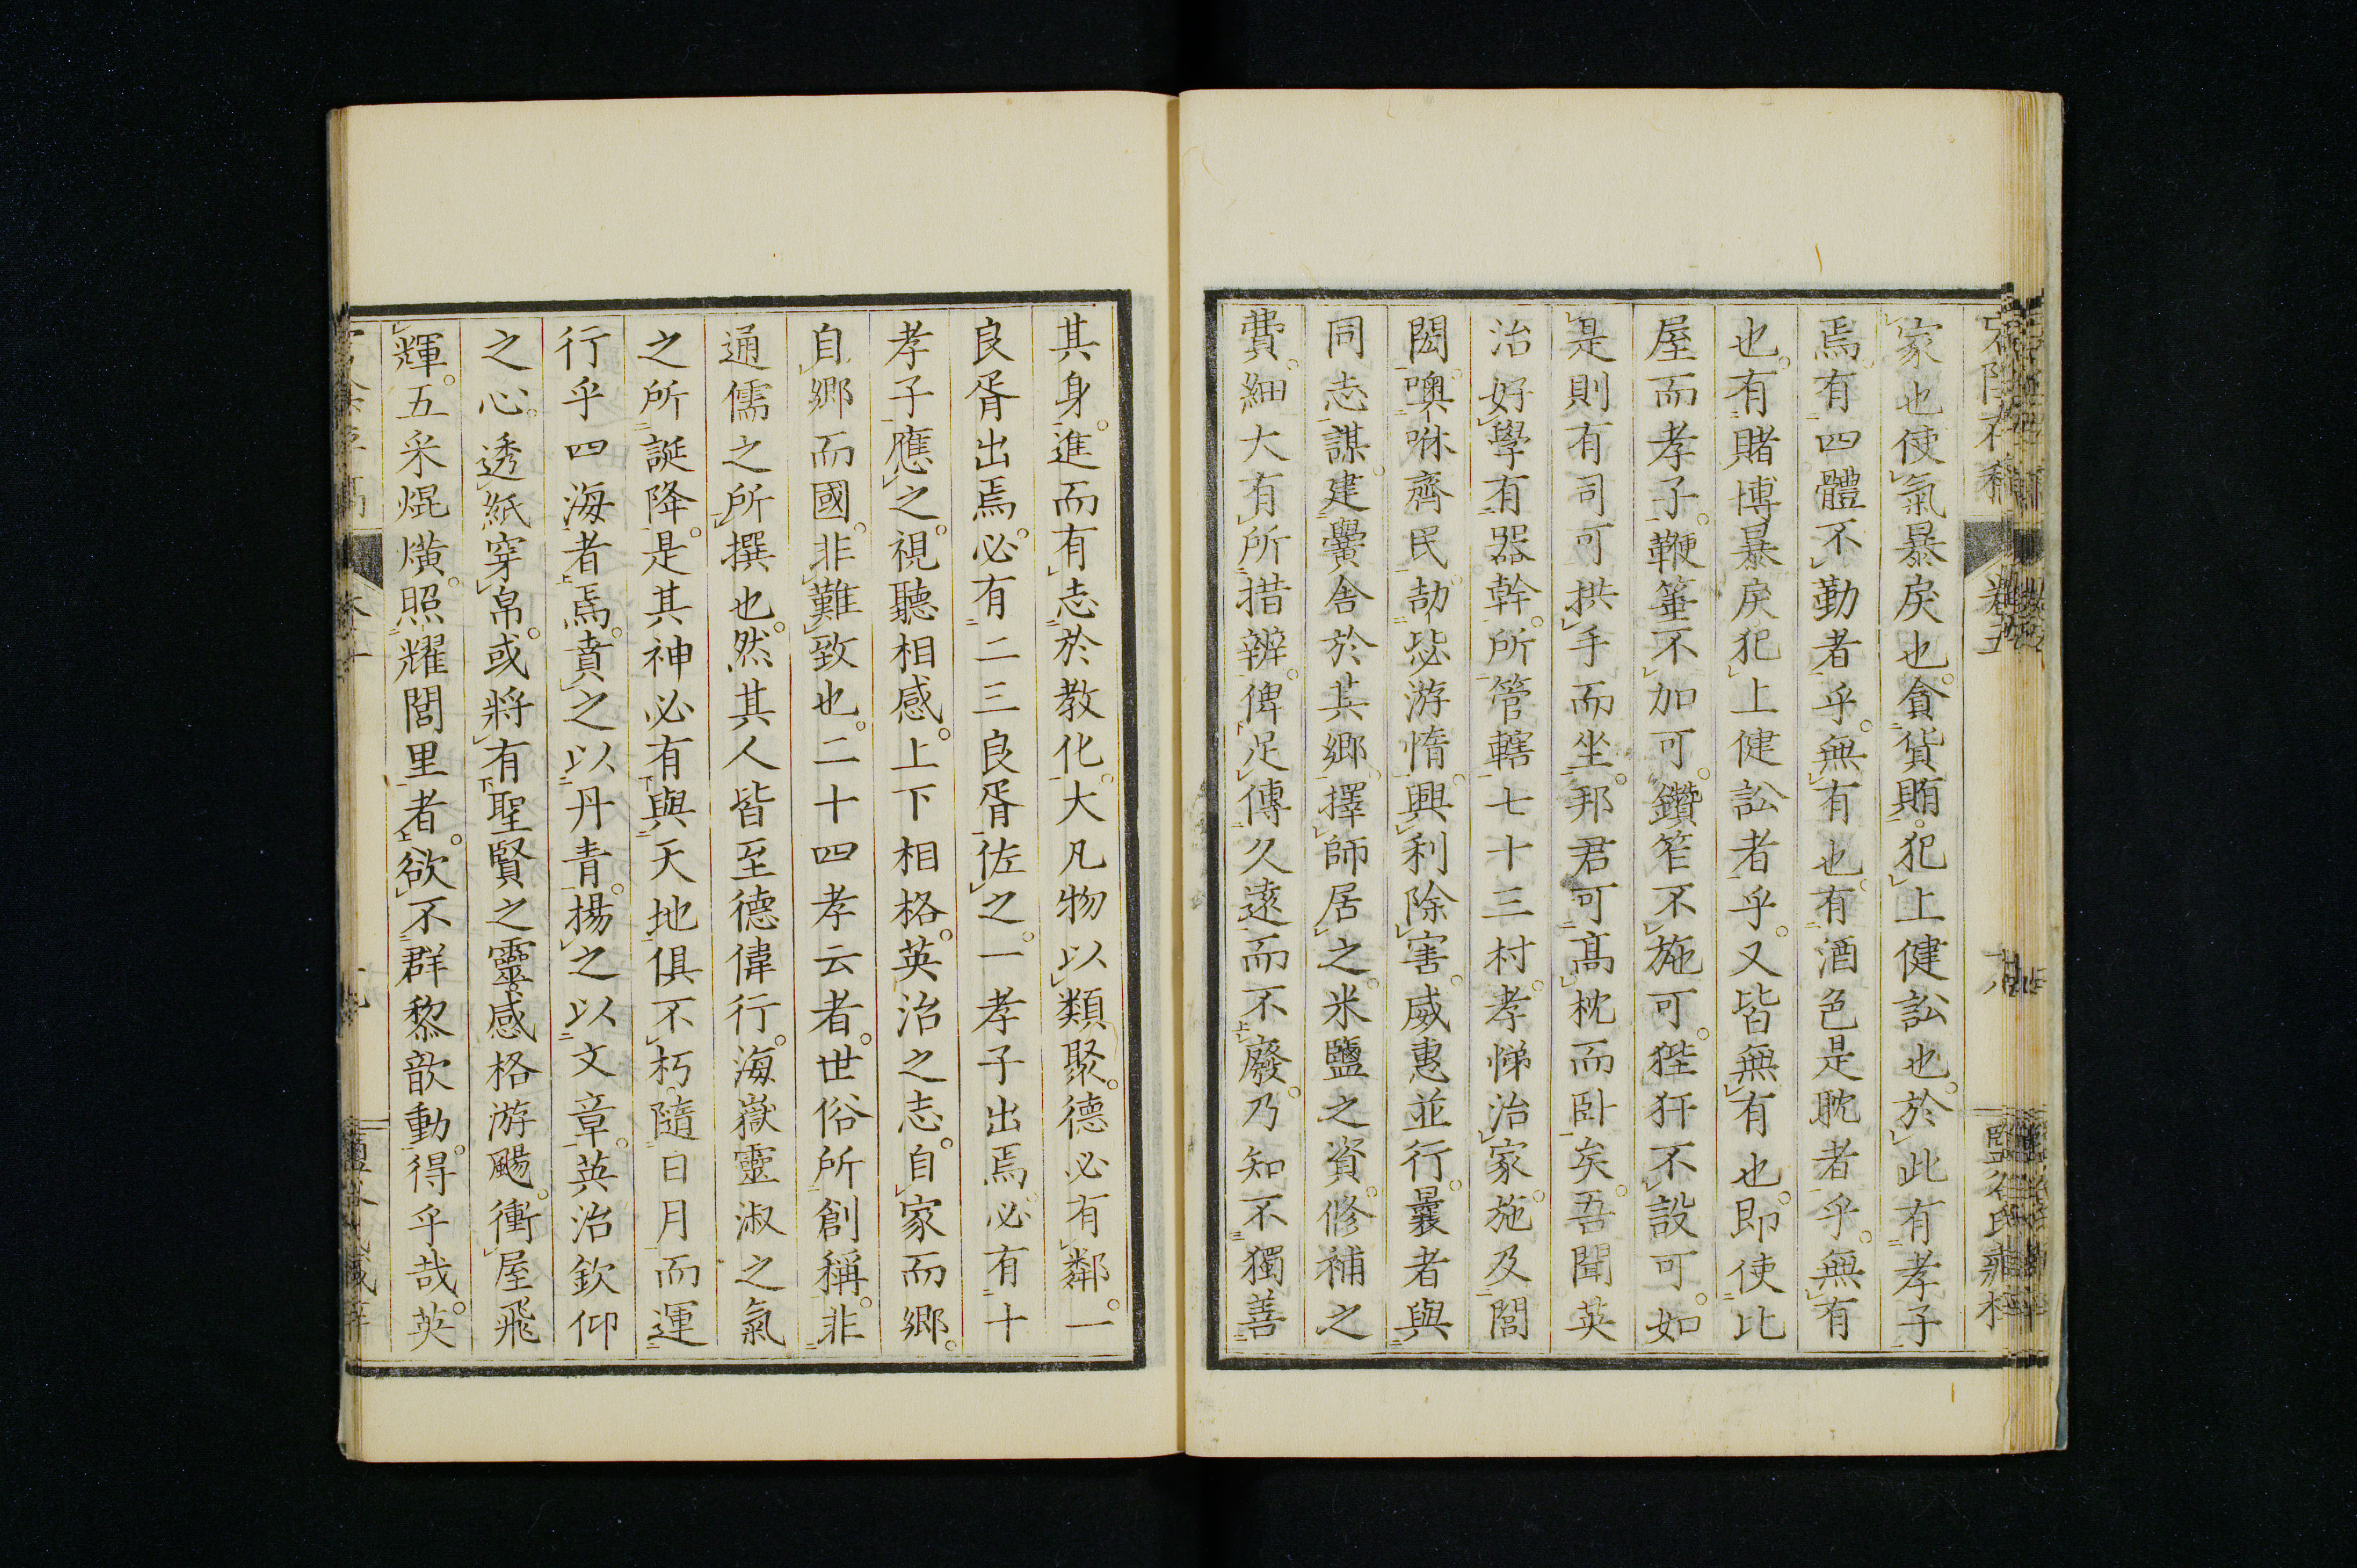 家也使氣暴戾也。貪貨賄。犯上健訟也。於此有孝子
焉。有四體不勤者乎。無有也。有酒色是耽者乎。無有
也。有賭博暴戾犯上健訟者乎。又皆無有也。即使比
屋而孝子。鞭箠不加可。鑽笮不施可。狴犴不設可。如
是則有司可拱手而坐。邦君可高枕而臥矣。吾聞英
治好學有器幹。所管轄七十三村。孝悌治家。施及閭
閻。噢咻齊民。劼毖游惰。興利除害。威惠並行。曩者與
同志謀。建黌舍於其鄉。擇師居之。米鹽之資。修補之
費。細大有所措辦。俾足傳久遠而不廢。乃知不獨善
其身。進而有志於教化。大凡物以類聚。德必有鄰。一
良胥出焉。必有二三良胥佐之。一孝子出焉。必有十
孝子應之。視聽相感。上下相格。英治之志。自家而鄉。
自鄉而國。非難致也。二十四孝云者。世俗所創稱。非
通儒之所撰也。然其人皆至德偉行。海嶽靈淑之氣
之所誕降。是其神必有與天地俱不朽。隨日月而運
行乎四海者焉。賁之以丹青。揚之以文章。英治欽仰
之心。透紙穿帛。或將有聖賢之靈。感格游颺。衝屋飛
輝。五采焜熿。照耀閭里者。欲不群黎歆動。得乎哉。英